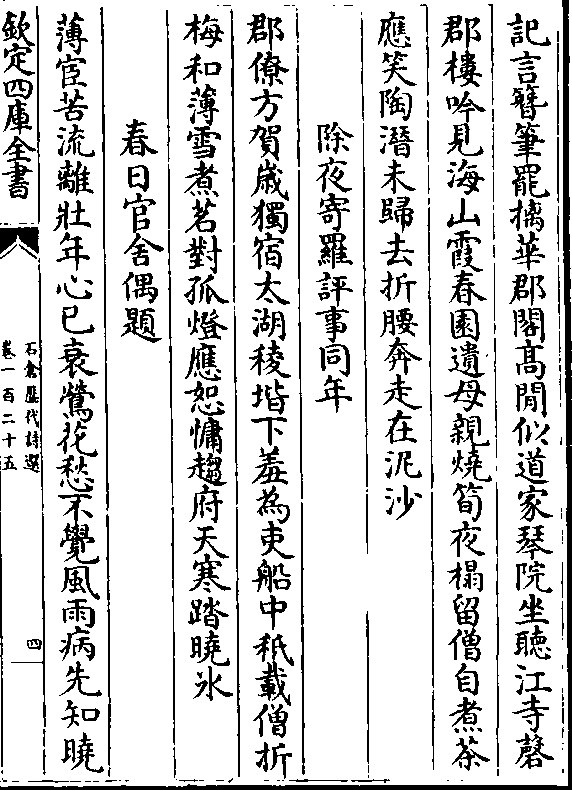 記言簪筆罷摛華郡閣高閒似道家琴院坐聽江寺磬
郡樓吟見海山霞春園遺母親燒筍夜榻留僧自煮茶
應笑陶潛未歸去折腰奔走在泥沙
除夜寄羅評事同年
郡僚方賀歲獨宿太湖稜堦下羞為吏船中秪載僧折
梅和薄雪煮茗對孤燈應恕慵趨府天寒踏曉氷
春日官舍偶題
薄宦苦流離壯年心已衰鶯花愁不覺風雨病先知曉
欽定四庫全書
石倉歷代詩選
卷一百二十五
四